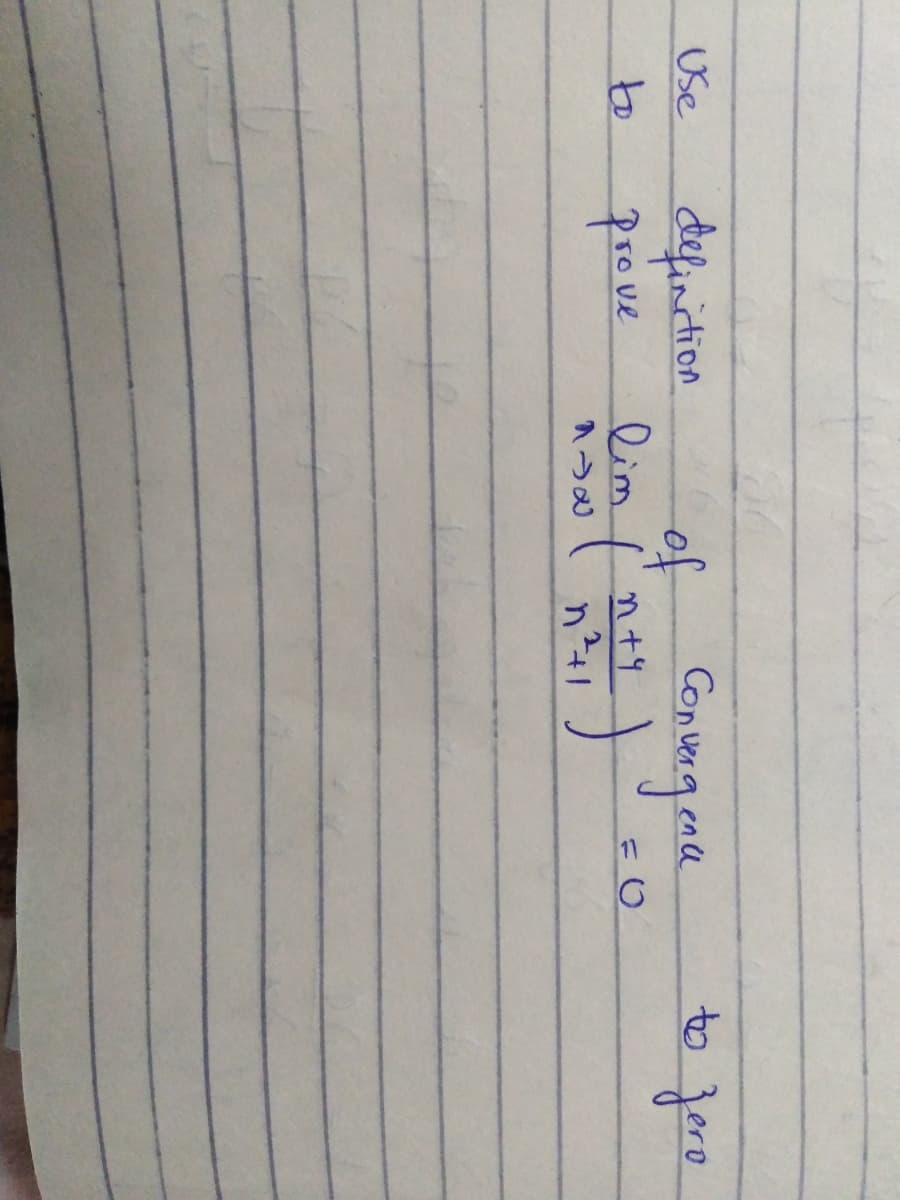 Use definition of Convergence to zero
to prove lim n→∞ ( n+4 / n²+1 ) = 0